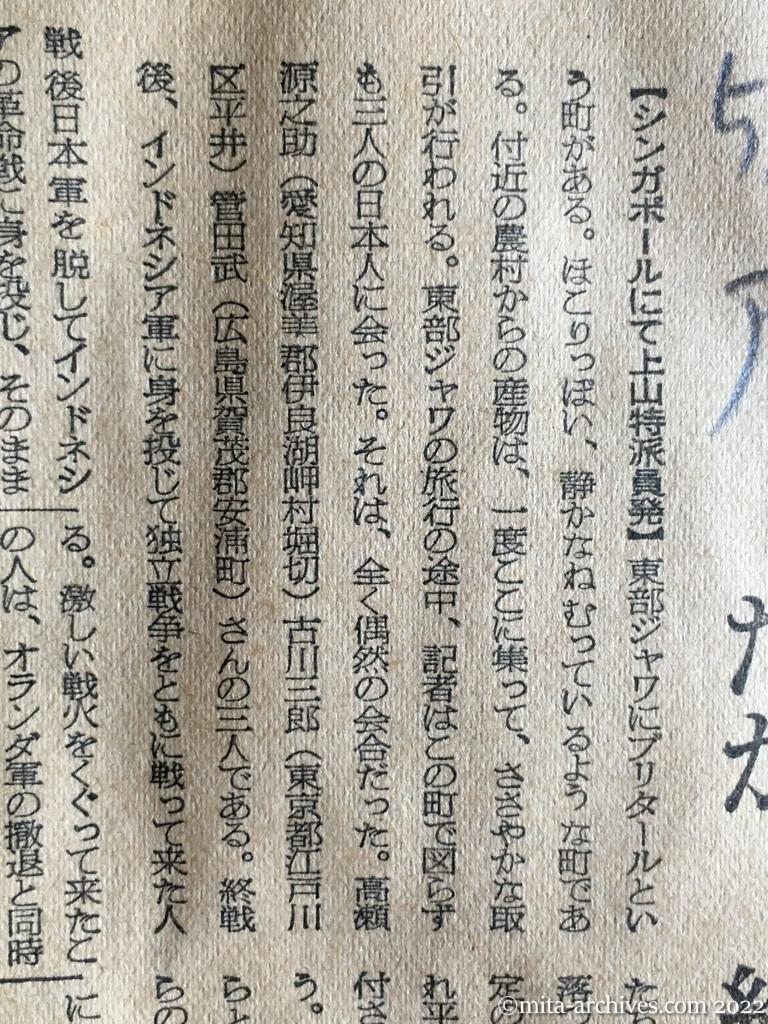 【シンガポールにて上山特派員発】東部ジャワにブリタールとい
う町がある。ほこりっぽい、静かなねむっているような町であ
る。付近の農村からの産物は、一度ここに集って、ささやかな取
引が行われる。東部ジャワの旅行の途中、記者はこの町で図らず
も三人の日本人に会った。それは、全く偶然の会合だった。高瀬
源之助（愛知県渥美郡伊良湖岬村堀切）古川三郎（東京都江戸川
区平井）菅田武（広島県賀茂郡安浦町）さんの三人である。終戦
後、インドネシア軍に身を投じて独立戦争をともに戦って来た人
戦後日本軍を脱してインドネシ
アの革命戦に身を投じ、そのまま
る。激しい戦火をくぐって来たこ
の人は、オランダ軍の撤退と同時
た
落
定の
れ平
付さ
う。
らと
らの
に
©mita-archives.com 2022